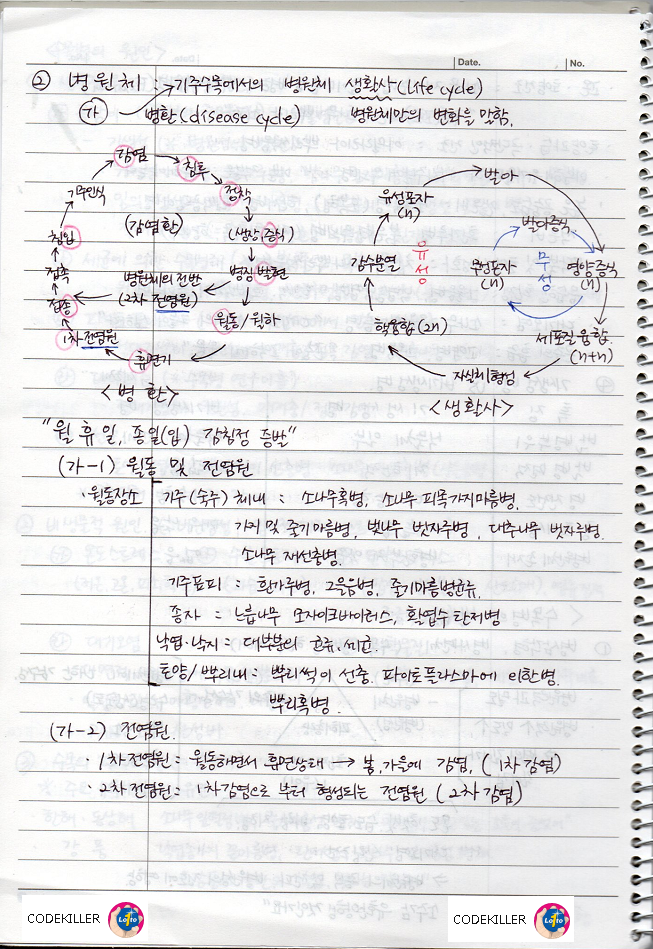 Date.
No.
② 병원체
기주수목에서의 병원체 생활사(Life cycle)
㉮ 병환(disease cycle) 병원체만의 변화를 말함.
감염
침투
정착
(생장,증식)
병징발현
월동/월하
휴면기
1차전염원
접종
접촉
침입
기주인식
(감염환)
병원체의 전반
(2차 전염원)
<병환>
발아
유성포자
(n)
감수분열
유성
핵융합(2n)
자실체형성
세포질융합
(n+n)
영양증식
(n)
발아증식
무성포자
(n)
무성
<생활사>
"월 휴 일, 종일(입) 감침정 증발"
(가-1) 월동 및 전염원
·월동장소
기주(숙주) 체내 : 소나무혹병, 소나무 피목가지마름병,
가지 및 줄기마름병, 벚나무 빗자루병, 대추나무 빗자루병.
소나무 재선충병.
기주표피 : 흰가루병, 그을음병, 줄기마름병균류.
종자 : 느릅나무 모자이크바이러스, 활엽수 탄저병
낙엽·낙지 : 대부분의 균류·세균.
토양/뿌리내 : 뿌리썩이 선충. 파이토플라스마에 의한병.
뿌리혹병.
(가-2) 전염원.
· 1차전염원 : 월동하면서 휴면상태 → 봄,가을에 감염, (1차감염)
· 2차전염원 : 1차감염으로 부터 형성되는 전염원 (2차감염)
CODEKILLER Lotto
CODEKILLER Lotto